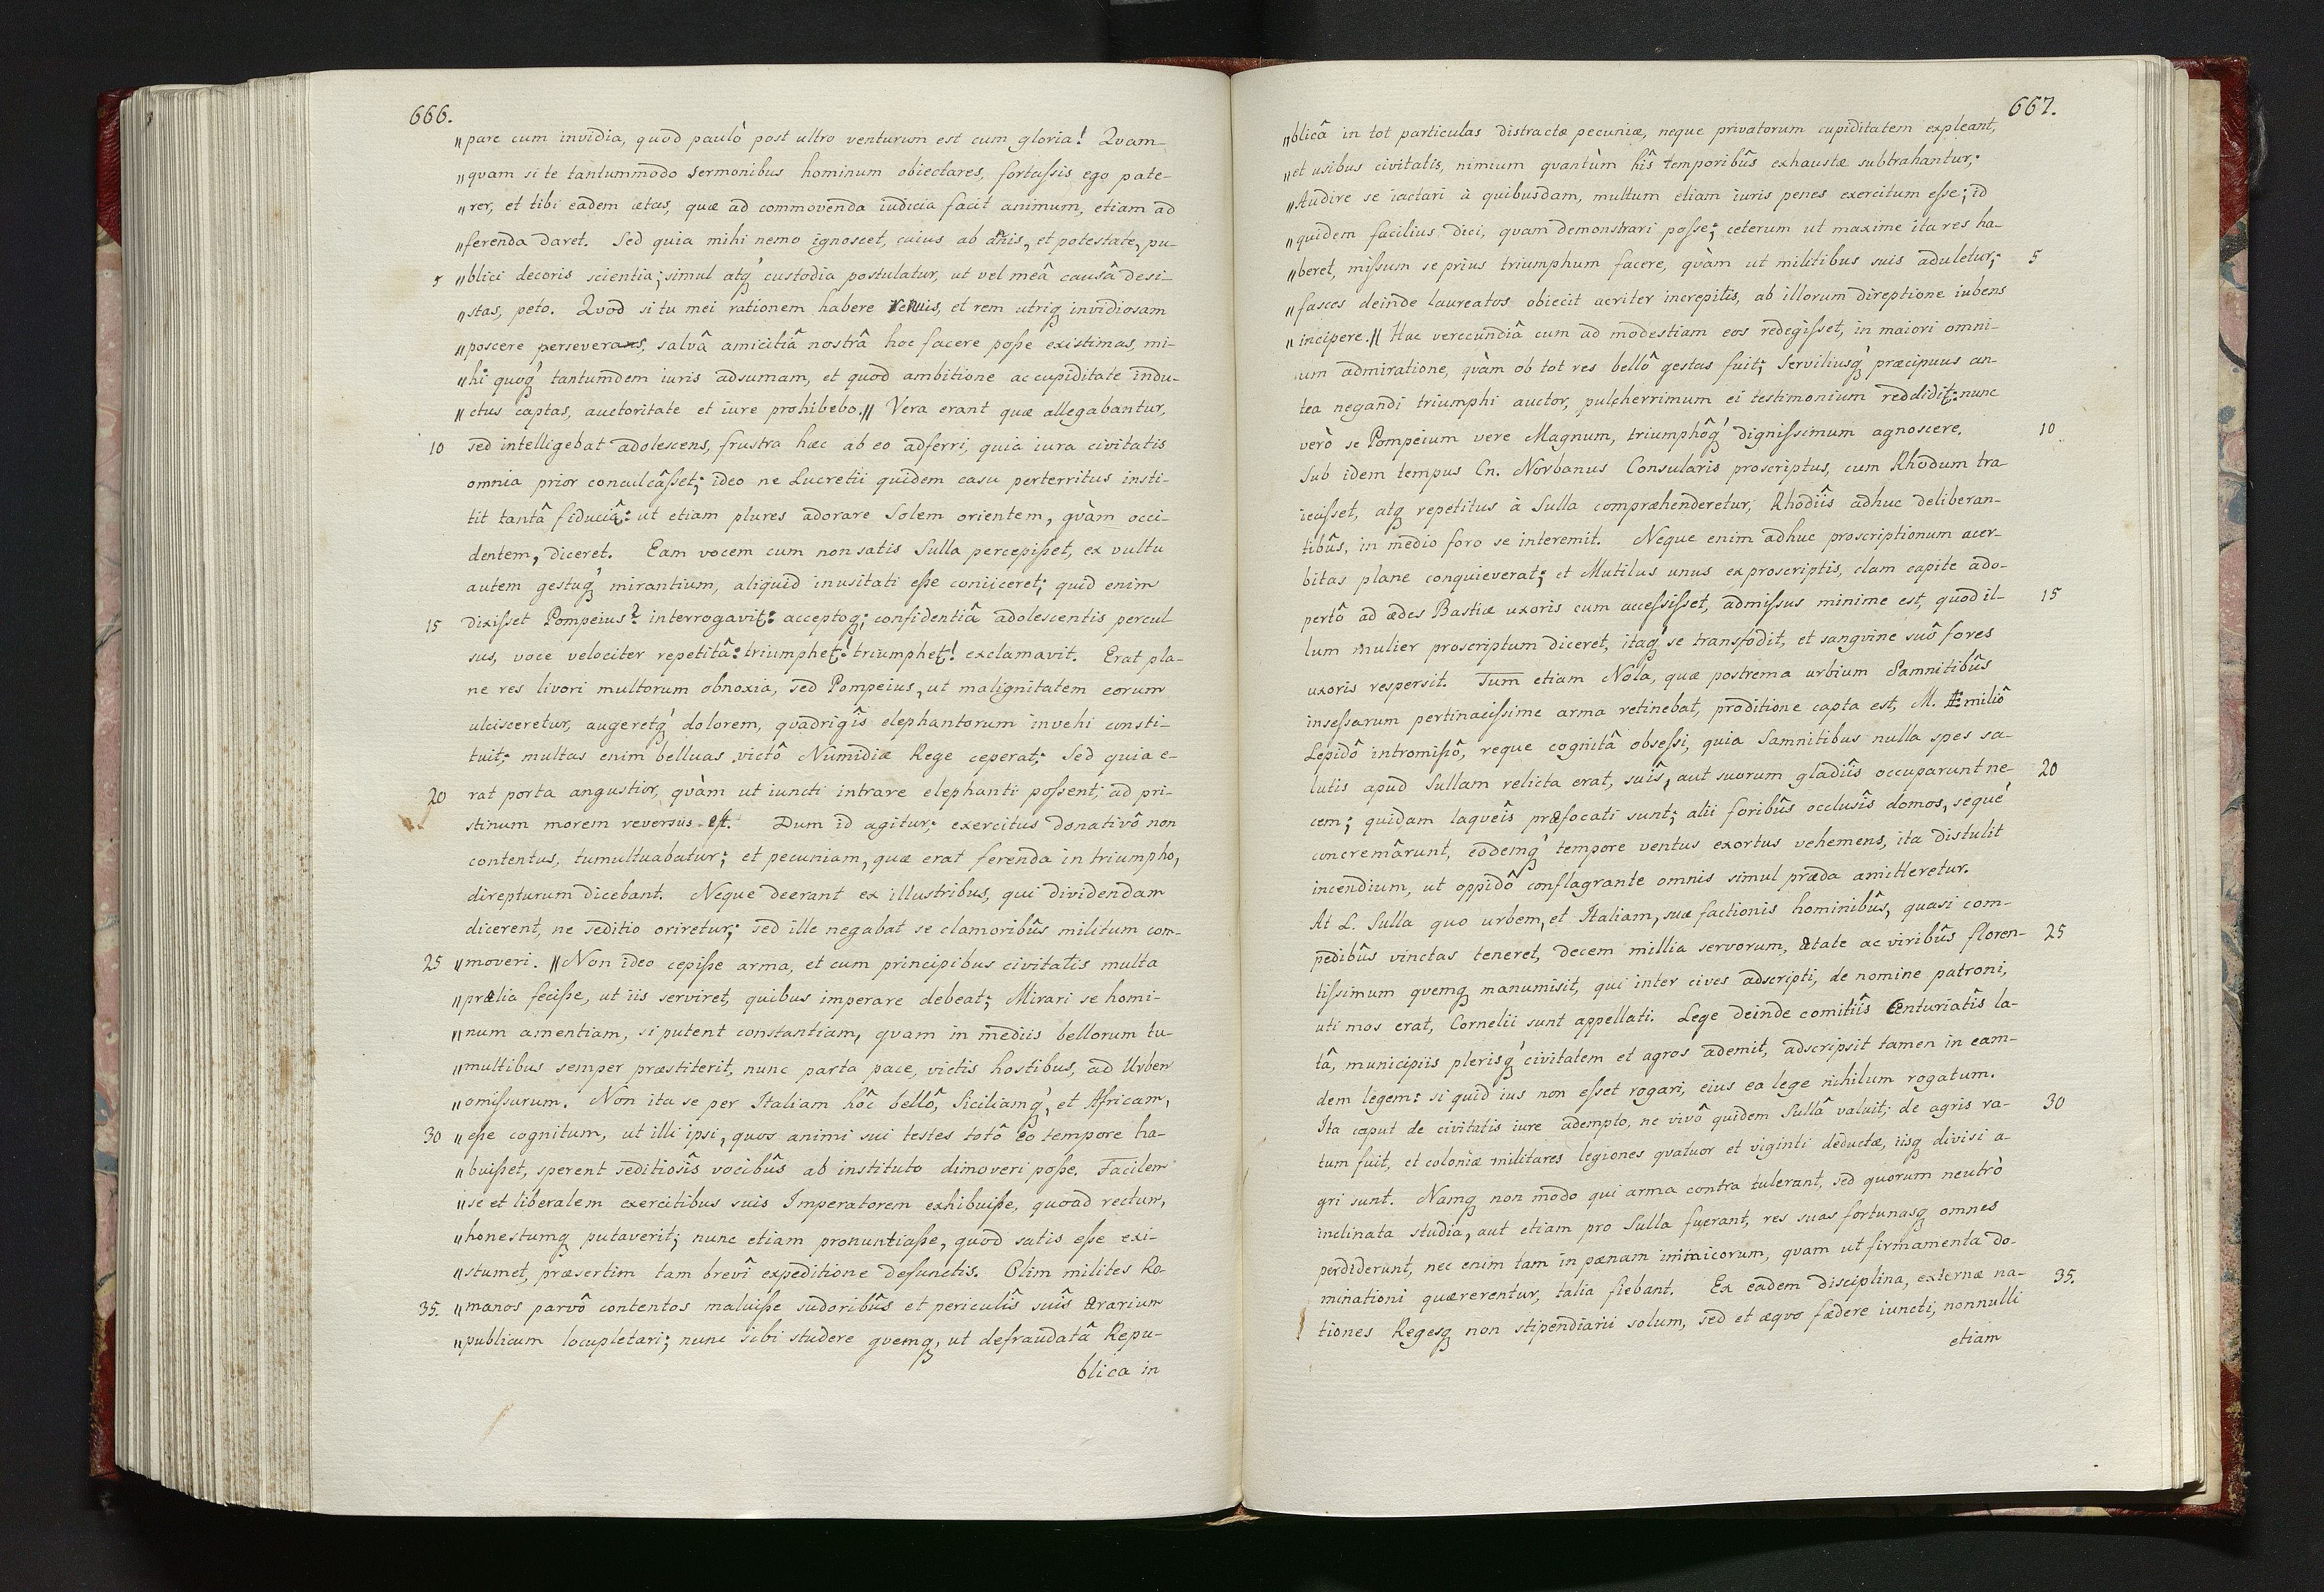 666.
"parc cum invidia, quod paulò post ultro venturum est cum gloria! Quam-
"quam si te tantummodo sermonibus hominum obiectares, fortassis ego pate-
"rer, et tibi eadem ætas, quæ ad commovenda iudicia facit animum, etiam ad
"ferenda daret. Sed quia mihi nemo ignoscet, cuius ab annis, et potestate, pu-
5 "blici decoris scientia; simul atq́ custodia postulatur, ut vel meâ causâ desi-
"stas, peto. Quod si tu mei rationem habere renuis, et rem utriq invidiosam
"poscere perseverans, salvâ amicitiâ nostrâ hoc facere posse existimas, mi-
"hi quoq́ tantumdem iuris adsumam, et quod ambitione ac cupiditate indu-
"ctus captas, auctoritate et iure prohibebo." Vera erant quæ allegabantur,
10 sed intelligebat adolescens, frustra hæc ab eo adferri, quia iura civitatis
omnia prior conculcâsset; ideo ne Lucretii quidem casu perterritus insti-
tit tantâ fiduciâ: ut etiam plures adorare Solem orientem, quàm occi-
dentem, diceret. Eam vocem cum non satis Sulla percepisset, ex vultu
autem gestuq́ mirantium, aliquid inusitati esse coniiceret; quid enim
15 dixisset Pompeius? interrogavit: acceptoq; confidentiâ adolescentis percul
sus, voce velociter repetitâ: triumphet! triumphet! exclamavit. Erat pla-
ne res livori multorum obnoxia, sed Pompeius, ut malignitatem eorum
ulcisceretur, augeretq́ dolorem, quadrigîs elephantorum invehi consti-
tuit; multas enim belluas victô Numidiæ Rege ceperat; Sed quia e-
20 rat porta angustior, quàm ut iuncti intrare elephanti possent; ad pri-
stinum morem reversus est. Dum id agitur; exercitus donativô non
contentus, tumultuabatur; et pecuniam, quæ erat ferenda in triumpho,
direpturum dicebant. Neque deerant ex illustribus, qui dividendam
dicerent, ne seditio oriretur; sed ille negabat se clamoribûs militum com-
25 "moveri. "Non ideo cepisse arma, et cum principibus civitatis multa
"prælia fecisse, ut iis serviret, quibus imperare debeat; Mirari se homi-
"num amentiam, si putent constantiam, quam in mediis bellorum tu-
"multibus semper præstiterit, nunc parta pace, victis hostibus, ad Urbem
"omissurum. Non ita se per Italiam hôc bellô, Siciliamq́, et Africam,
30 "esse cognitum, ut illi ipsi, quos animi sui testes totô eo tempore ha-
"buisset, sperent seditiosîs vocibûs ab instituto dimoveri posse. Facilem
"se et liberalem exercitibus suis Imperatorem exhibuisse, quoad rectum,
"honestumq putaverit; nunc etiam pronuntiasse, quod satis esse exi-
"stumet, præsertim tam brevî expeditione defunctis. Olim milites Ro-
35. "manos parvô contentos maluisse sudoribûs et periculîs suîs ærarium
"publicum locupletari; nunc sibi studere quemq, ut defraudatâ Repu-
blica in
667.
"blicâ in tot particulas distractæ pecuniæ, neque privatorum cupiditatem expleant,
"et usibus civitatis, nimium quantùm hîs temporibûs exhaustæ subtrahantur;
"Audire se iactari à quibusdam, multum etiam iuris penes exercitum esse; id
"quidem facilius dici, quam demonstrari posse; ceterum ut maxime ita res ha-
"beret, missum se prius triumphum facere, quàm ut militibus suis aduletur; 5
"fasces deinde laureatos obiecit acriter increpitis, ab illorum direptione iubens
"incipere." Hac verecundiâ cum ad modestiam eos redegisset, in maiori omni-
um admiratione, quàm ob tot res bellô gestas fuit; Serviliusq́ præcipuus an-
tea negandi triumphi auctor, pulcherrimum ei testimonium reddidit: nunc
verò se Pompeium vere Magnum, triumphôq́ dignissimum agnoscere. 10
Sub idem tempus Cn. Norbanus Consularis proscriptus, cum Rhodum tra
iecisset, atq repetitus à Sulla compræhenderetur, Rhodiîs adhuc deliberan-
tibûs, in medio foro se interemit. Neque enim adhuc proscriptionum acer-
bitas plane conquieverat; et Mutilus unus ex proscriptis, clam capite ado-
pertô ad ædes Bastiæ uxoris cum accessisset, admissus minime est, quod il- 15
lum mulier proscriptum diceret, itaq́ se transfodit, et sanguine suô fores
uxoris respersit. Tum etiam Nola, quæ postrema urbium Samnitibûs
insessarum pertinacissime arma retinebat, proditione capta est, M. Æmiliô
Lepidô intromissô, reque cognitâ obsessi, quia Samnitibus nulla spes sa-
lutis apud Sullam relicta erat, suîs, aut suorum gladiîs occuparunt ne- 20
cem; quidam laqueîs præfocati sunt; alii foribûs occlusîs domos, seque
concremârunt, eodemq́ tempore ventus exortus vehemens, ita distulit
incendium, ut oppidô conflagrante omnis simul præda amitteretur.
At L. Sulla quo urbem, et Italiam, suæ factionis hominibûs, quasi com-
pedibûs vinctas teneret, decem millia servorum, ætate ac viribûs floren- 25
tissimum quemq manumisit, qui inter cives adscripti, de nomine patroni,
uti mos erat, Cornelii sunt appellati. Lege deinde comitiîs Centuriatîs la-
tâ, municipiis plerisq́ civitatem et agros ademit, adscripsit tamen in eam-
dem legem: si quid ius non esset rogari, eius ea lege nihilum rogatum.
Ita caput de civitatis iure adempto, ne vivô quidem Sullâ valuit; de agris ra- 30
tum fuit, et coloniæ militares legiones quatuor et viginti deductæ, iisq divisi a-
gri sunt. Namq non modo qui arma contra tulerant, sed quorum neutrò
inclinata studia, aut etiam pro Sulla fuerant, res suas fortunasq omnes
perdiderunt, nec enim tam in pænam inimicorum, quam ut firmamenta do-
minationi quærerentur, talia fiebant. Ex eadem disciplina, externæ na- 35.
tiones Regesq non stipendiarii solum, sed et æquo fædere iuncti, nonnulli
etiam